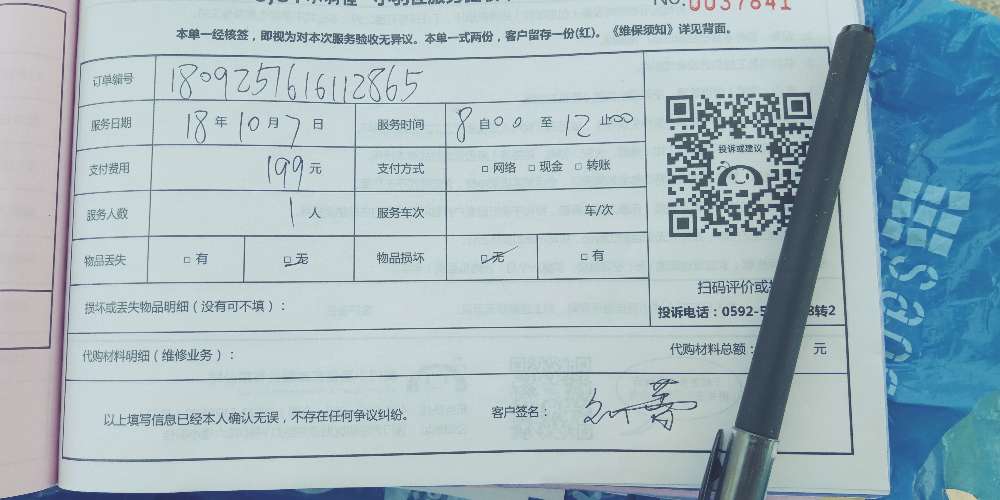 NO. 0037841
本单一经核签，即视为对本次服务验收无异议。本单一式两份，客户留存一份(红)。《维保须知》详见背面。
订单编号 1809257616112865
服务日期 18 年 10 月 7 日 服务时间 8 自 00 至 12 止 00
支付费用 199 元 支付方式 □ 网络 □ 现金 □ 转账
投诉或建议
服务人数 1 人 服务车次 车/次
物品丢失 □ 有 □ 无 物品损坏 □ 无 □ 有
扫码评价或
损坏或丢失物品明细（没有可不填）：
投诉电话：0592-5 8转2
代购材料明细（维修业务）： 代购材料总额： 元
以上填写信息已经本人确认无误，不存在任何争议纠纷。 客户签名：